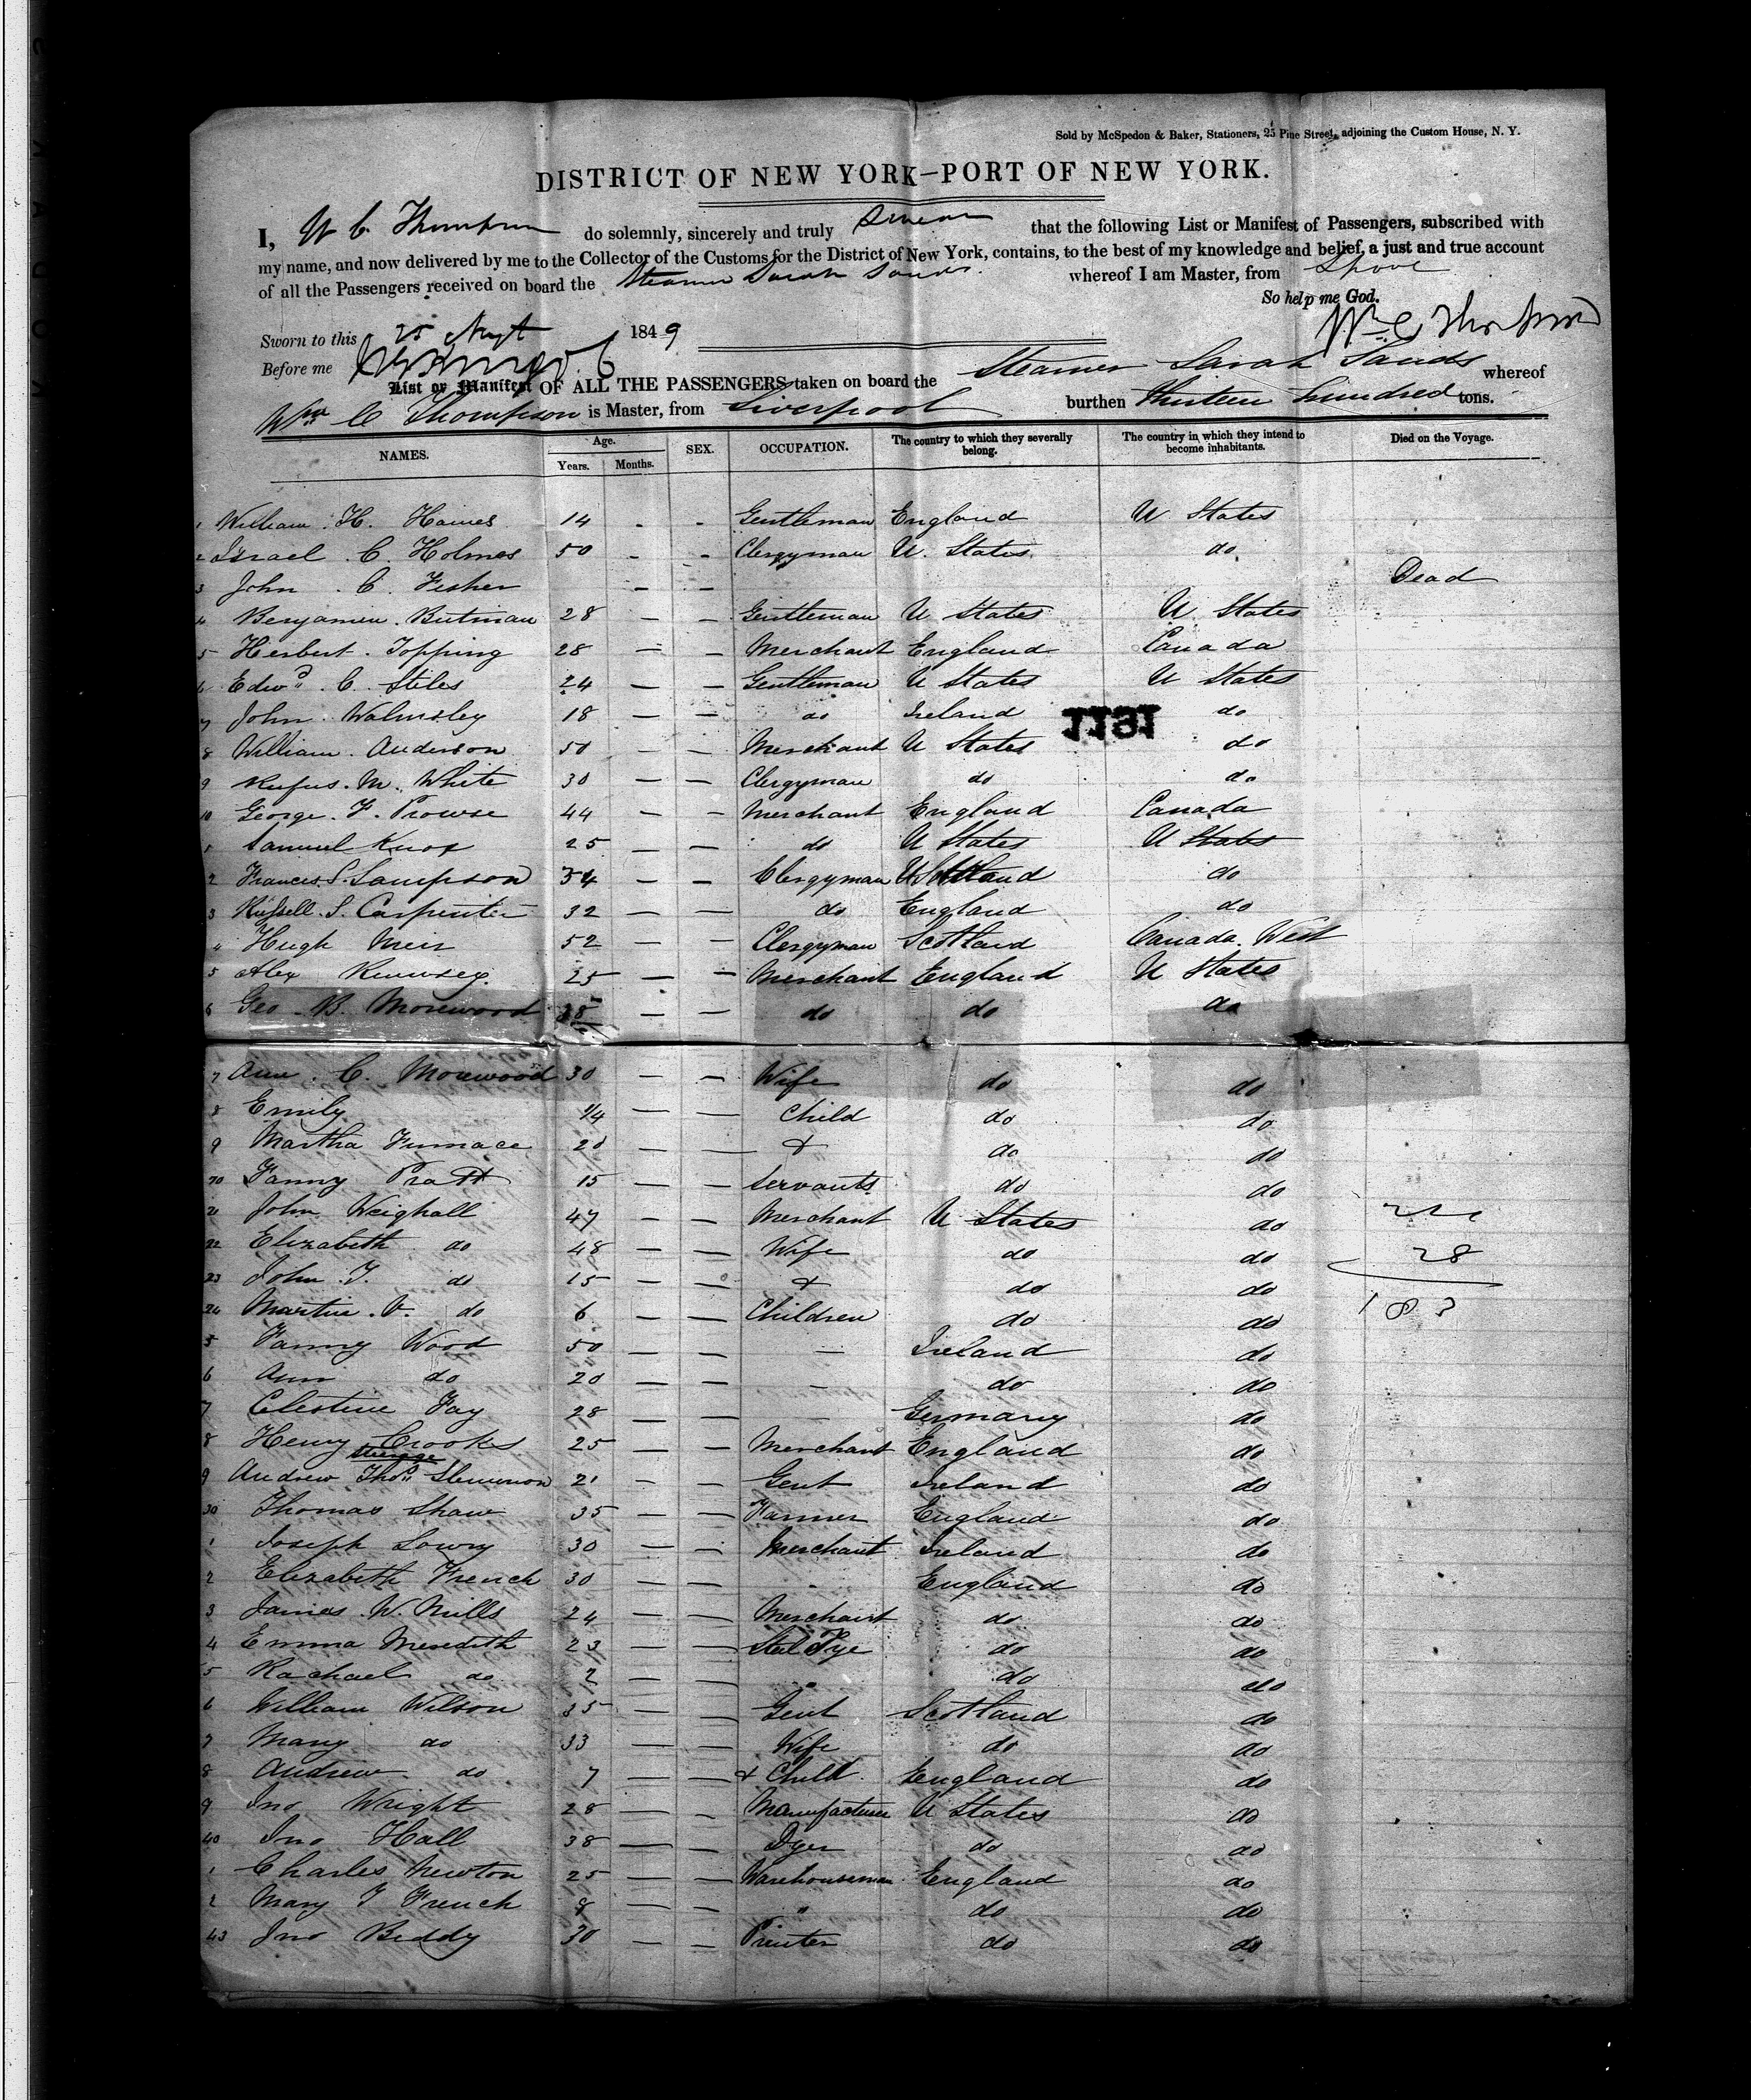 Sold by McSpedon & Baker, Stationers, 25 Pine Street, adjoining the Custom House, N. Y.
DISTRICT OF NEW YORK—PORT OF NEW YORK.
I, W C. Thompson do solemnly, sincerely and truly swear that the following List or Manifest of Passengers, subscribed with
my name, and now delivered by me to the Collector of the Customs for the District of New York, contains, to the best of my knowledge and belief, a just and true account
of all the Passengers received on board the Steamer Sarah Sands. whereof I am Master, from Lpool
So help me God.
Sworn to this 25 1849 Wm C Thompson
Before me
List or Manifest OF ALL THE PASSENGERS taken on board the Steamer Sarah Sands whereof
Wm C Thompson is Master, from Liverpool burthen thirteen hundred tons.
NAMES. Age. Years. Months. SEX. OCCUPATION. The country to which they severally belong. The country in which they intend to become inhabitants. Died on the Voyage.
1 William H. Haines 14 - - Gentleman England U States
2 Israel C. Holmes 50 - - Clergyman U. States do
3 John C. Fisher - - Dead
4 Benjamin Butman 28 - - Gentleman U States U States
5 Herbert Topping 28 - - Merchant England Canada
6 Edwd C. Stiles 24 - - Gentleman U States U States
7 John Walmsley 18 - - do Ireland do
1131
8 William Anderson 50 - - Merchant U States do
9 Rufus M. White 30 - - Clergyman do do
10 George F. Prowse 44 - - Merchant England Canada
1 Samuel Knox 25 - - do U States U States
2 Frances S. Sampson 34 - - Clergyman do
3 Russell S. Carpenter 32 - - do England do
4 Hugh Meir 52 - - Clergyman Scotland Canada West
5 Alex 25 - - Merchant England U States
6 Geo B. Morewood 38 - - do do do
7 Ann C. Morewood 30 - - Wife do do
8 Emily 1/4 - - Child do do
9 Martha Furnace 20 - - & do do
20 Fanny Pratt 15 - - Servants do do
21 John Weighall 47 - - Merchant U States do
22 Elizabeth do 48 - - Wife do do 28
23 John T. do 15 - - & do do
24 Martin V. do 6 - - Children do do 183
5 Fanny Wood 50 - - - Ireland do
6 Ann do 20 - - - do do
7 Celestine Fay 28 - - - Germany do
8 Henry Crooks 25 - - Merchant England do
9 Andrew Thos Slemmon 21 - - Gent Ireland do
30 Thomas Shaw 35 - - Farmer England do
1 Joseph Lowry 30 - - Merchant Ireland do
2 Elizabeth French 30 - - England do
3 James W. Mills 24 - - Merchant do do
4 Emma Meredith 23 - - do do
5 Rachael do 2 - - do do
6 William Wilson 35 - - Gent Scotland do
7 Mary do 33 - - Wife do do
8 Andrew do 7 - - & Child England do
9 Jno Wright 28 - - Manufacturer U States do
40 Jno Hall 38 - - Dyer do do
1 Charles Newton 25 - - Warehouseman England do
2 Mary T French 8 - - " do do
43 Jno Biddy 30 - - Printer do do